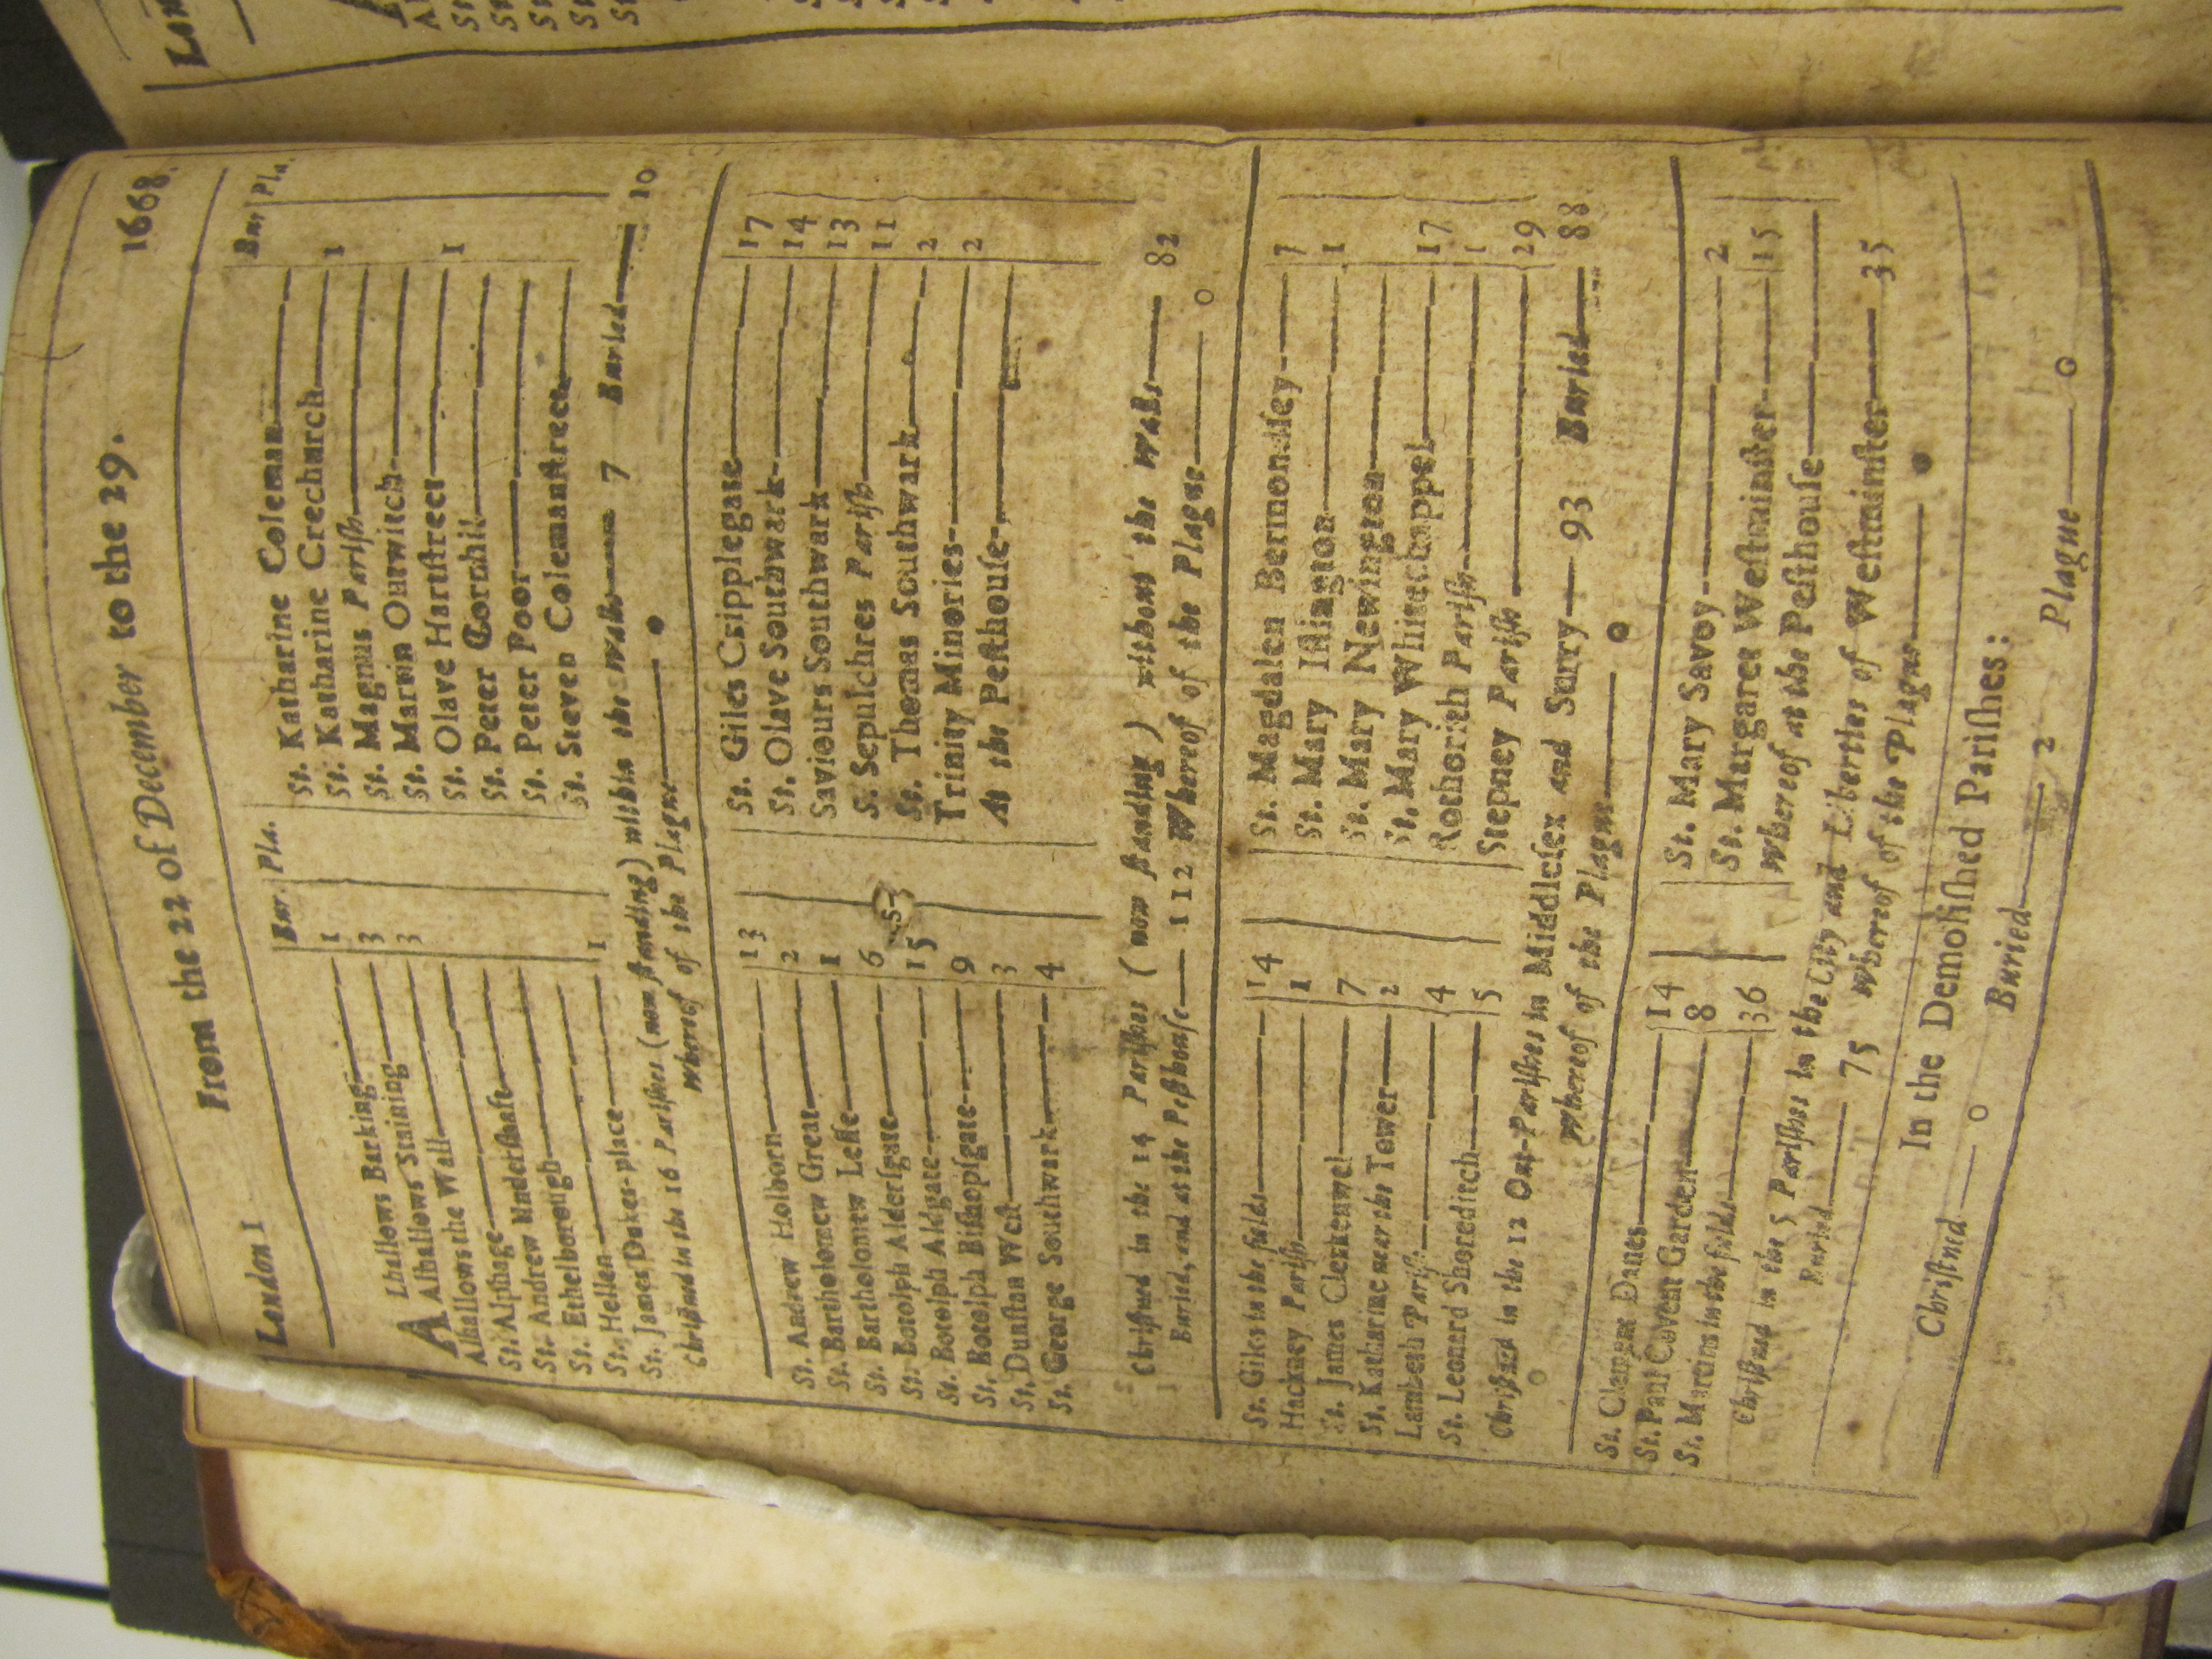 London 1
From the 22 of December to the 29.
1668.
Bur. Pla.
Bur, Pla.
ALhallows Barking 1
Alhallows Staining 3
Alhallows the Wall 3
St. Alphage
St. Andrew Undershaft
St. Ethelborough
St. Hellen
St. James Dukes-place 1
St. Katharine Coleman
St. Katharine Creechurch 1
St. Magnus Parish
St. Martin Outwitch
St. Olave Hartstreet 1
St. Peter Cornhil
St. Peter Poor
St. Steven Colemanstreet
Christned in the 16 Parishes (now standing) within the Walls 7 Buried 10
Whereof of the Plague 0
St. Andrew Holborn 13
St. Bartholomew Great 2
St. Bartholomew Lesse 1
St. Botolph Aldersgate 6
St. Botolph Aldgate 15
St. Botolph Bishopsgate 9
St. Dunstan West 3
St. George Southwark 4
St. Giles Cripplegate 17
St. Olave Southwark 14
Saviours Southwark 13
S. Sepulchres Parish 11
St. Thomas Southwark 2
Trinity Minories 2
At the Pesthouse
Christned in the 14 Parishes (now standing) without the Walls 82
Buried, and at the Pesthouse 112 Whereof of the Plague 0
St. Giles in the fields 14
Hackney Parish 1
St. James Clerkenwel 7
St. Katharine near the Tower 2
Lambeth Parish 4
St. Leonard Shoreditch 5
St. Magdalen Bermondsey 7
St. Mary Islington 1
St. Mary Newington
St. Mary Whitechappel 17
Rothorith Parish 1
Stepney Parish 29
Christned in the 12 Out-Parishes in Middlesex and Surry 93 Buried 88
Whereof of the Plague 0
St. Clement Danes 14
St. Paul Covent Garden 8
St. Martins in the fields 36
St. Mary Savoy 2
St. Margaret Westminster 15
Whereof at the Pesthouse
Christned in the 5 Parishes in the City and Liberties of Westminster 35
Buried 75 Whereof of the Plague 0
In the Demolished Parishes:
Christned 0
Buried 2
Plague 0